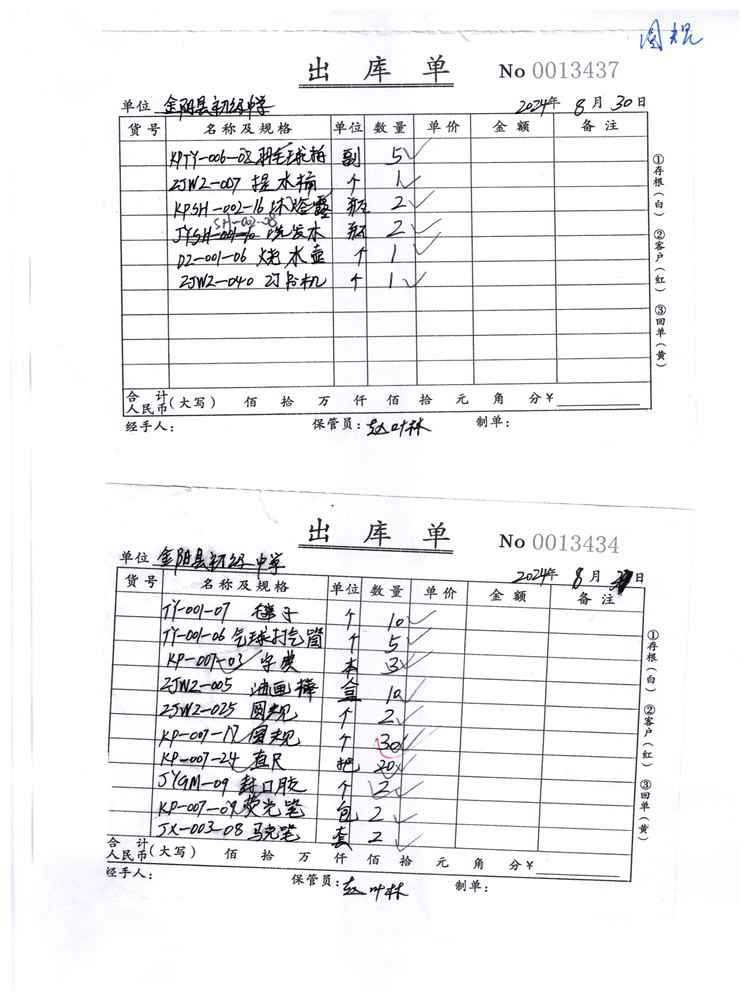 出库单 No 0013437
单位 金阳县初级中学 2024年 8月 30日
货号 名称及规格 单位 数量 单价 金额 备注
KPTY-006-08 羽毛球拍 副 5
ZJW2-007 提水桶 个 1
KPSH-002-16 沐浴露 瓶 2
SH-002-08
洗发水 瓶 2
DZ-001-06 烧水壶 个 1
ZJW2-040 订书机 个 1
合计人民币(大写) 佰 拾 万 仟 佰 拾 元 角 分¥
经手人: 保管员:赵叶林 制单:
①存根(白) ②客户(红) ③回单(黄)
出库单 No 0013434
单位 金阳县初级中学 2024年 8月 日
货号 名称及规格 单位 数量 单价 金额 备注
TY-001-07 毽子 个 10
TY-001-06 气球打气筒 个 5
KP-007-03 字典 本 3
ZJW2-005 油画棒 盒 10
ZJW2-025 圆规 个 2
KP-007-17 圆规 个 30
KP-007-24 直尺 把 20
JYGM-09 封口胶 个 3
KP-007-09 荧光笔 包 2
JX-003-08 马克笔 套 2
合计人民币(大写) 佰 拾 万 仟 佰 拾 元 角 分¥
经手人: 保管员:赵叶林 制单:
①存根(白) ②客户(红) ③回单(黄)